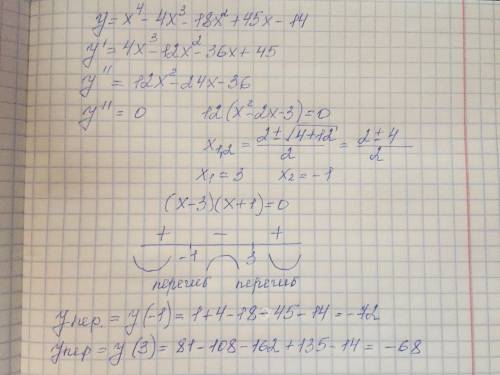 y = x⁴ - 4x³ - 18x² + 45x - 14
y' = 4x³ - 12x² - 36x + 45
y'' = 12x² - 24x - 36
y'' = 0 12(x² - 2x - 3) = 0
x₁,₂ = (2 ± √(4+12))/2 = (2 ± 4)/2
x₁ = 3 x₂ = -1
(x-3)(x+1) = 0
+ - +
-1 3
перегиб перегиб
yпер. = y(-1) = 1+4-18-45-14 = -72
yпер = y(3) = 81-108-162+135-14 = -68